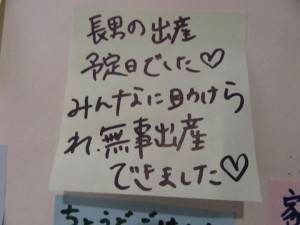 長男の出産
予定日でした♡
みんなに助けら
れ、無事出産
できました♡
ちょうど
家